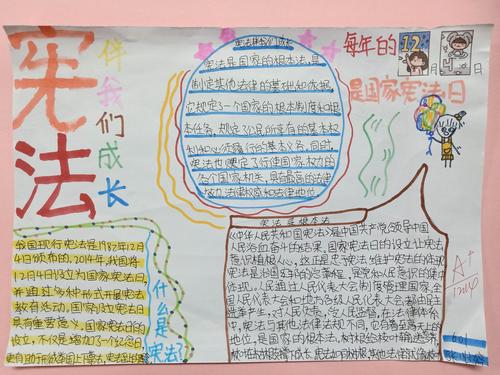 宪法
伴我们成长
每年的12月4日
是国家宪法日
宪法是国家的根本法,是
制定其他法律的基础和依据,
它规定了一个国家的根本制度和根
本任务,规定了公民所享有的基本权
利和必须履行的基本义务,同时,
宪法也规定了行使国家权力的
各个国家机关,具有最高的法律
效力、法律权威和法律地位
我国现行宪法是1982年12月
4日颁布的,2014年,我国将
12月4日设立为国家宪法日,
并通过多种形式开展宪法
教育活动,国家设立宪法日
具有重要意义。国家宪法日的
设立,不仅是增加了一个纪念日,
什么是
宪法?
宪法是根本法
《中华人民共和国宪法》是中国共产党领导中国
人民浴血奋斗的结果,国家宪法日的设立让宪法
意识植根人心,
宪法是治国理政的总章程,是党和人民意志的集中
体现。人民通过人民代表大会制度管理国家,全
国人民代表大会和地方各级人民代表大会都由民主
选举产生,对人民负责,受人民监督,在法律体系
中,宪法与其他法律法规不同,它有着至高无上的
地位,是国家的根本法,
A+
12.14
601